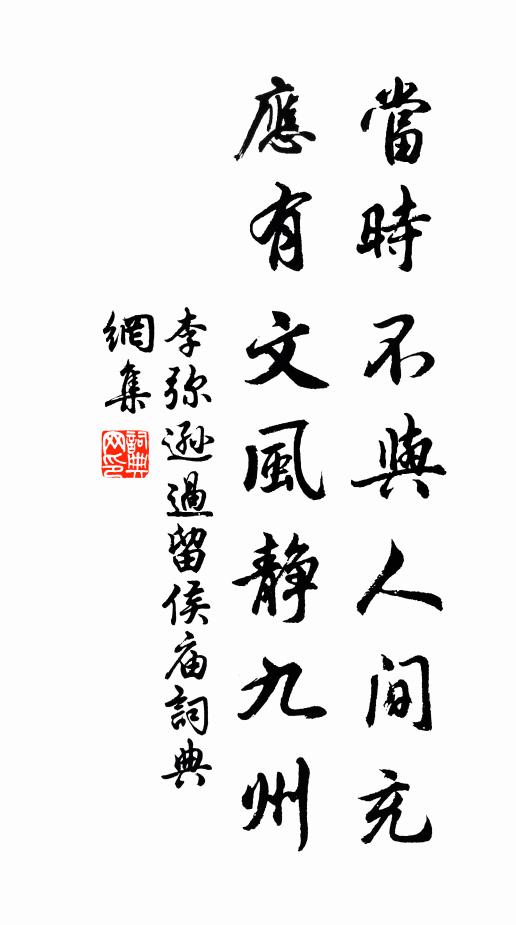 當時不與人間充
應有文風靜九州
李弥遜過留侯庙詞典
網集
詞典
网印